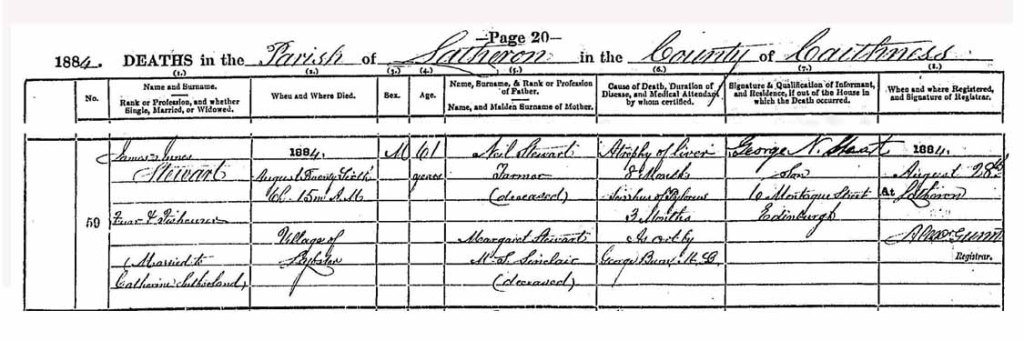 —Page 20—
1884. DEATHS in the Parish of Latheron in the County of Caithness
(1.) (2.) (3.) (4.) (5.) (6.) (7.) (8.)
No.
Name and Surname.
Rank or Profession, and whether
Single, Married, or Widowed.
When and Where Died.
Sex.
Age.
Name, Surname, & Rank or Profession
of Father.
Name, and Maiden Surname of Mother.
Cause of Death, Duration of
Disease, and Medical Attendant
by whom certified.
Signature & Qualification of Informant,
and Residence, if out of the House in
which the Death occurred.
When and where Registered,
and Signature of Registrar.
59
James Innes
Stewart
Married to
Catherine Sutherland)
1884.
August Twenty Sixth
15m A.M
Village of
Lybster
M
61
years
Neil Stewart
Farmer
(deceased)
Margaret Stewart
M. S. Sinclair
(deceased)
Atrophy of Liver
Months
of Pylorus
3 Months
As cert by
George Burn M.B.
George N.
Son
6 Montague Street
Edinburgh
1884.
August 28th
At Latheron
Alexr Gunn
Registrar.